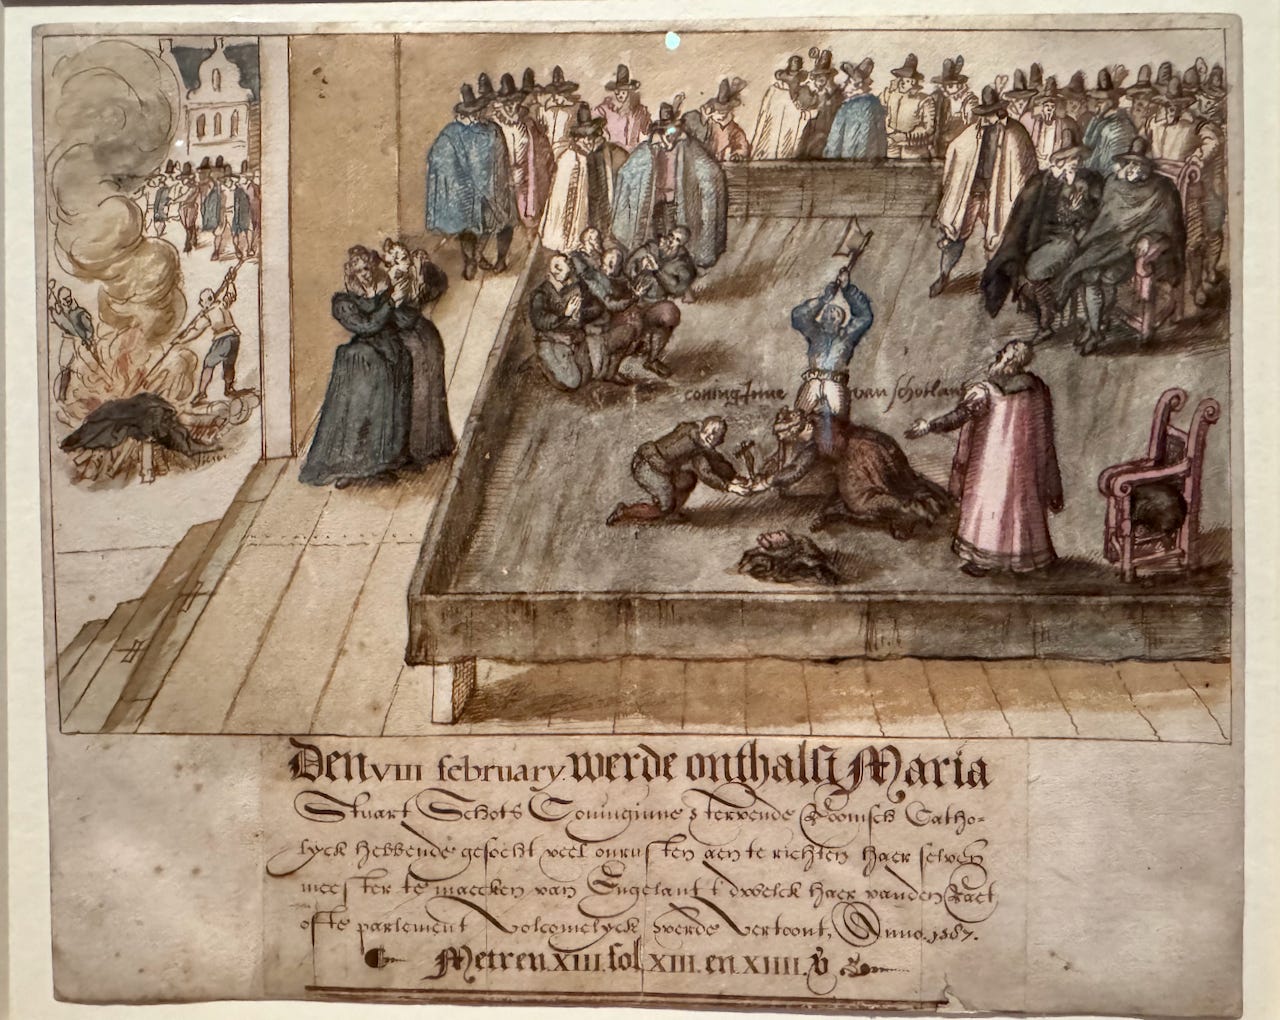 coninginne van schotlant
Den VIII february werde onthalst Maria
Stuart Schots Coninginne stervende Roomsch Catho-
lyck hebbende gesocht veel onrusten aen te richten haer selven
meester te maecken van Engelant t'dwelck haer vanden Raet
ofte parlement volcomelyck werde vertoont, Anno. 1587.
Meteren XIII. fol XIII. en XIIII.